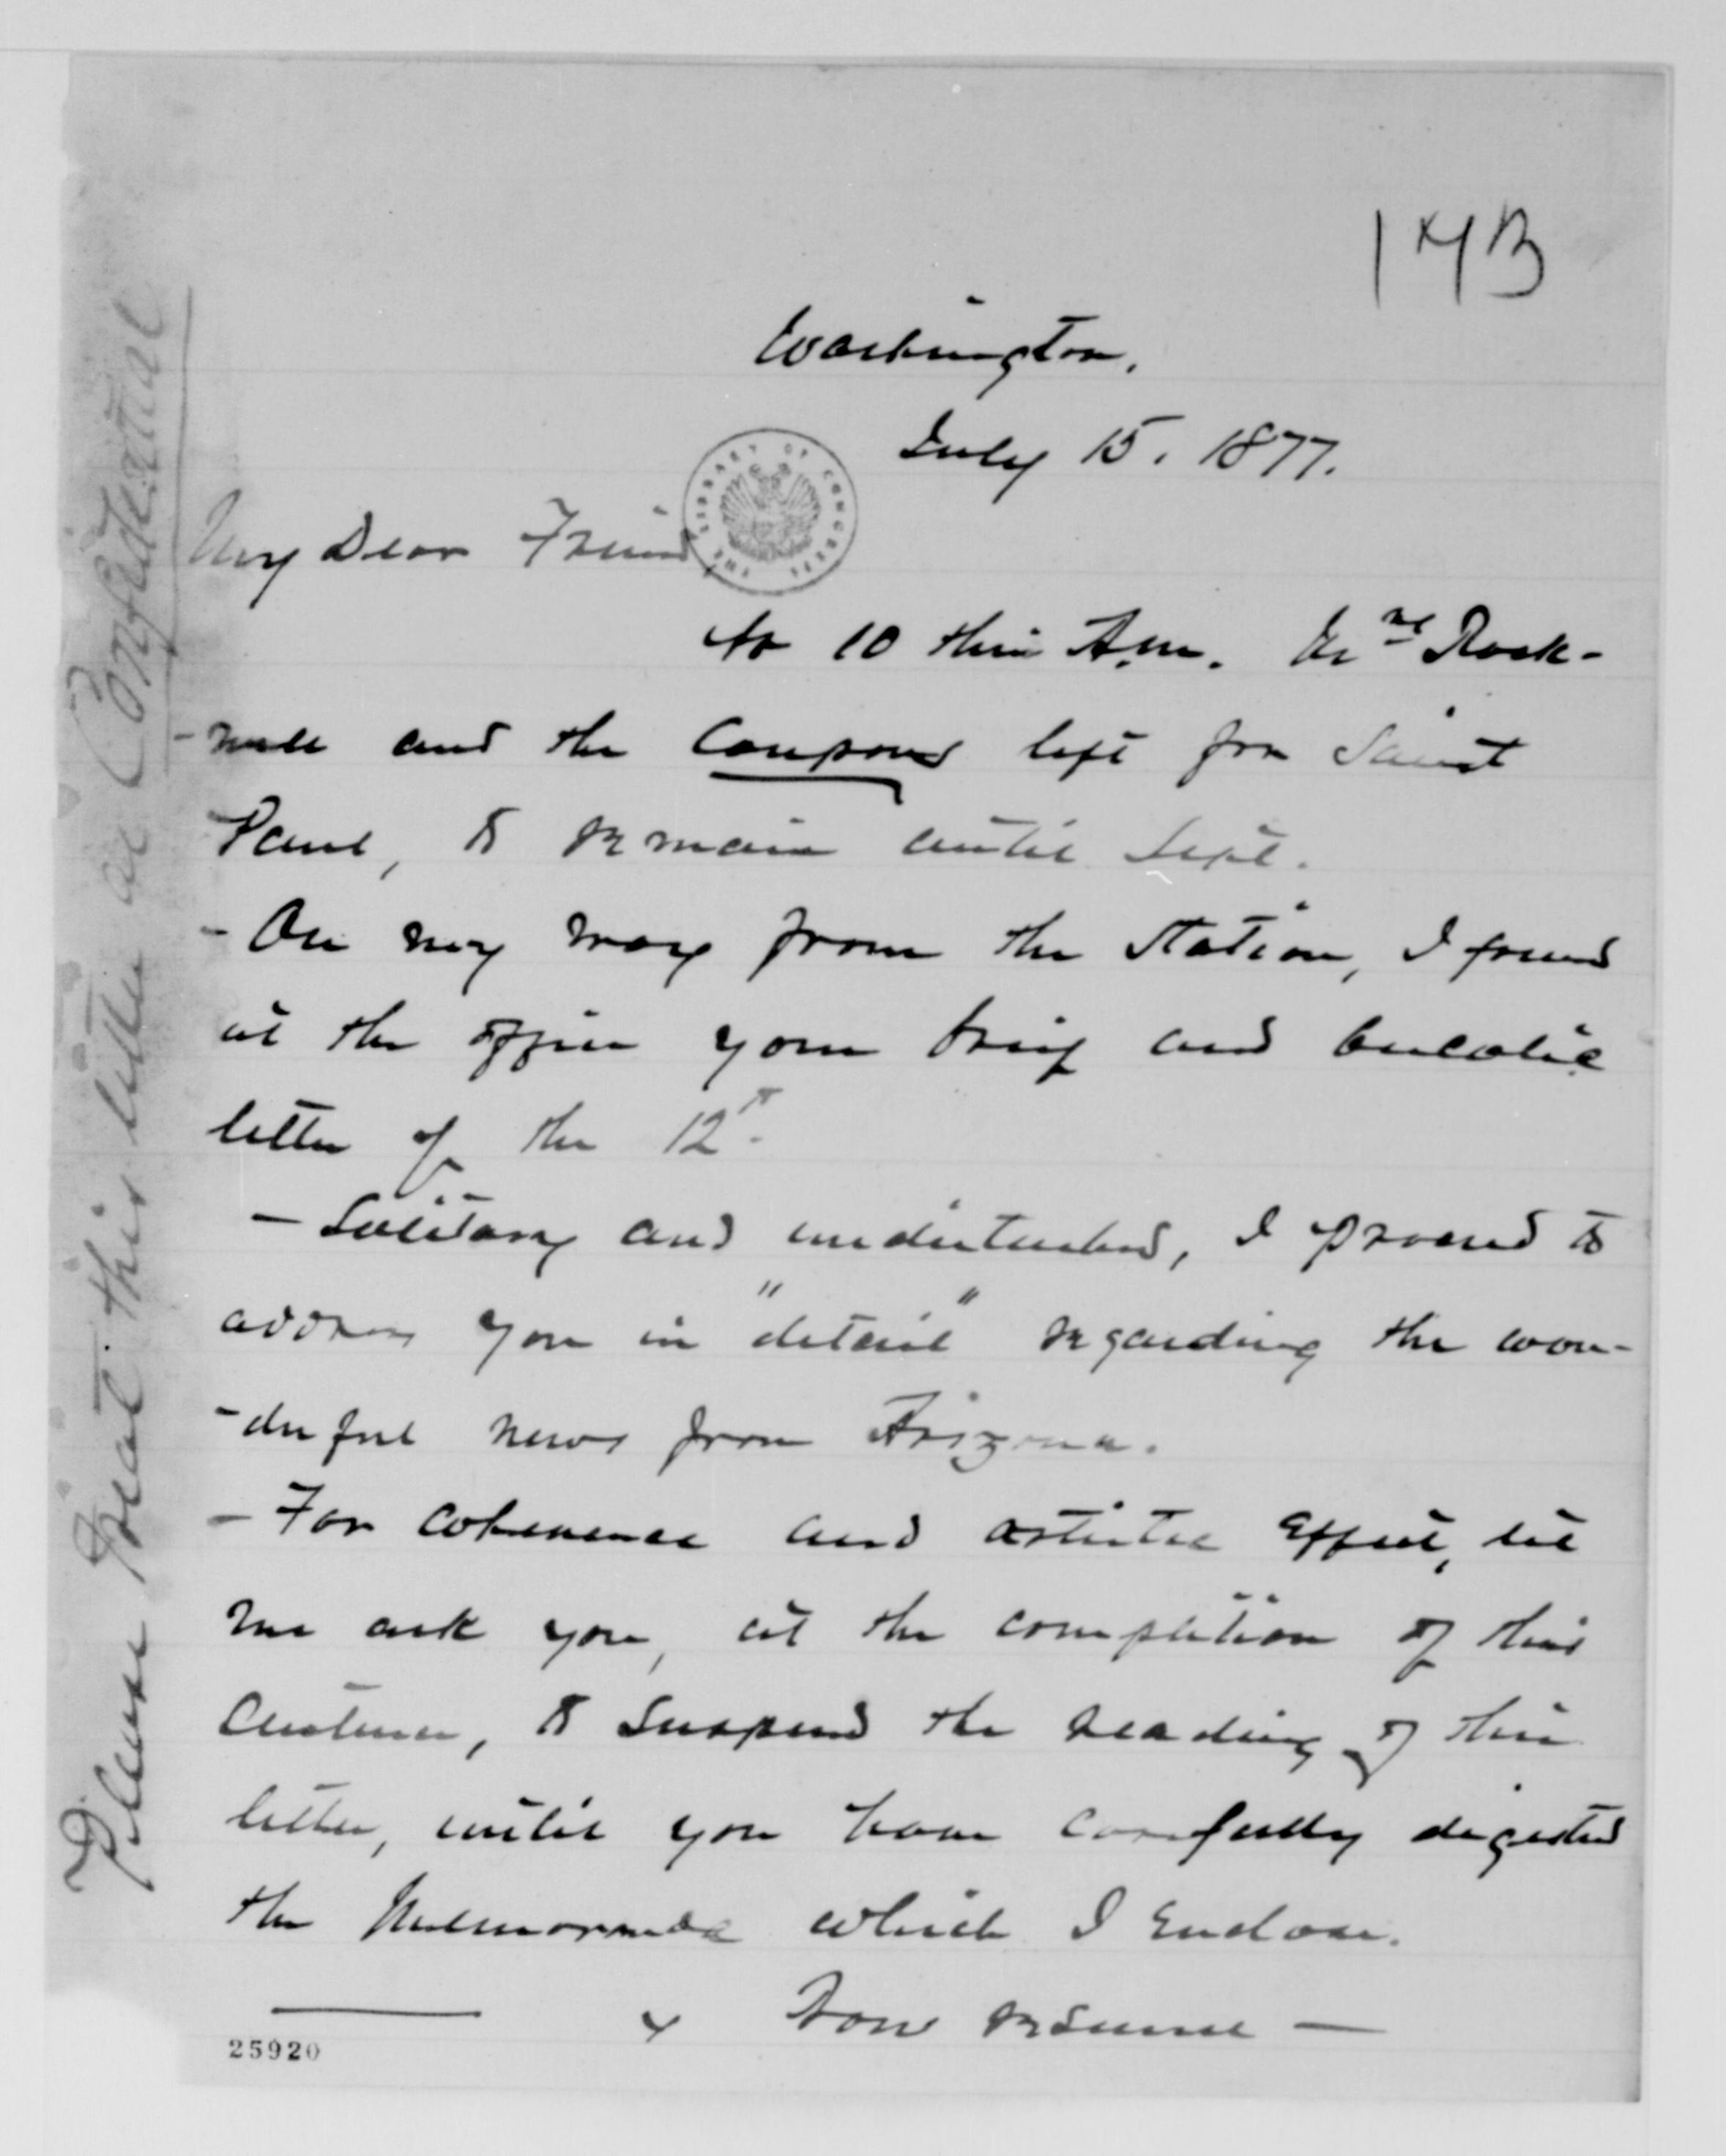 143
Washington,
July 15. 1877.
My Dear Friend,
At 10 this A.m. Mrs Rock-
-well and the Coupons left for Saint
Paul, to remain until Sept.
- On my way from the Station, I found
at the office your brief and bucolic
letter of the 12th.
- Solitary and undisturbed, I proceed to
address you in "detail" regarding the won-
-derful news from Arizona.
- For coherence and artistic effect, let
me ask you, at the completion of this
sentence, to suspend the reading of this
letter, until you have carefully digested
the Memoranda which I enclose.
Now resume —
25920
Please treat this letter as Confidential
THE LIBRARY OF CONGRESS